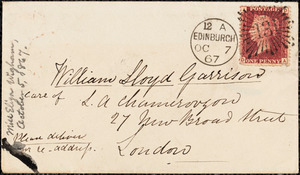 12 A
EDINBURGH
OC 7
67
William Lloyd Garrison
care of L. A. Chamerovzow
27 New Broad Street
London
Please deliver
or re-address.
Miss Eliza Wigham,
October 5, 1867.